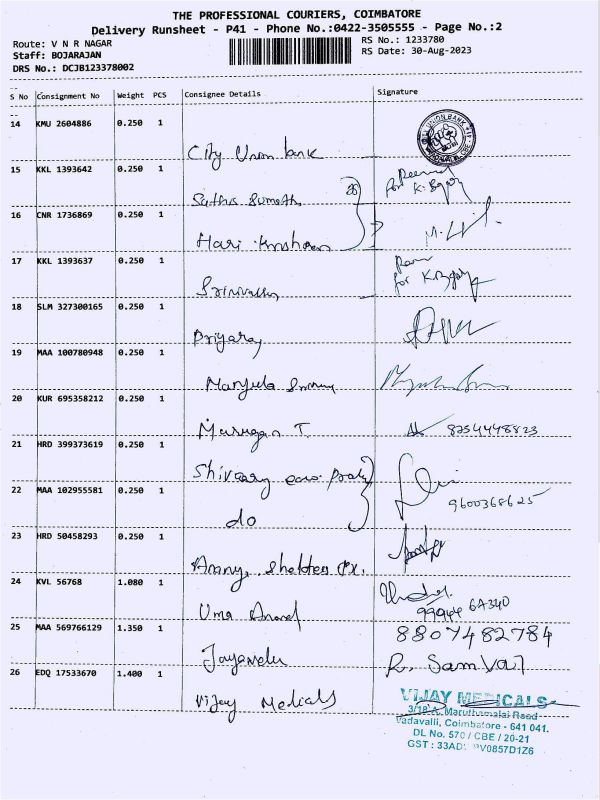 THE PROFESSIONAL COURIERS, COIMBATORE
Delivery Runsheet - P41 - Phone No.:0422-3505555 - Page No.:2
Route: V N R NAGAR
RS No.: 1233780
Staff: BOJARAJAN
RS Date: 30-Aug-2023
DRS No.: DCJB123378002
S No Consignment No Weight PCS Consignee Details Signature
14 KMU 2604886 0.250 1
City Union bank
15 KKL 1393642 0.250 1
Sathis Sumathi
for K.
16 CNR 1736869 0.250 1
Hari
17 KKL 1393637 0.250 1
Srinivasan
for
18 SLM 327300165 0.250 1
Priyaraj
19 MAA 100780948 0.250 1
Manjula
20 KUR 695358212 0.250 1
Murugan T. 8254448823
21 HRD 399373619 0.250 1
22 MAA 102955581 0.250 1
do 9600368625
23 HRD 50458293 0.250 1
24 KVL 56768 1.080 1
Uma Anand 99944 64340
25 MAA 569766129 1.350 1
8807482784
Jayavelu
26 EDQ 17533670 1.400 1
Vijay Medicals
VIJAY MEDICALS
3/18-A, Maruthamalai Road
Vadavalli, Coimbatore - 641 041.
DL No. 570 / CBE / 20-21
GST :